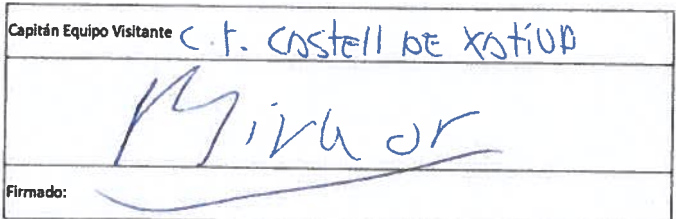 Capitán Equipo Visitante C.T. CASTELL DE XATIVA
Firmado: